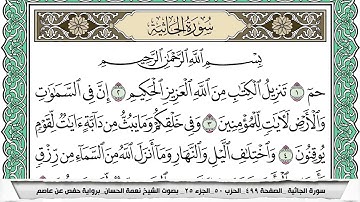 سُورَةُ الجَاثِيَةِ
بِسْمِ اللَّهِ الرَّحْمَٰنِ الرَّحِيمِ
حمٓ ۝١ تَنزِيلُ الْكِتَٰبِ مِنَ اللَّهِ الْعَزِيزِ الْحَكِيمِ ۝٢ إِنَّ فِي السَّمَٰوَٰتِ
وَالْأَرْضِ لَءَايَٰتٍ لِّلْمُؤْمِنِينَ ۝٣ وَفِي خَلْقِكُمْ وَمَا يَبُثُّ مِن دَآبَّةٍ ءَايَٰتٌ لِّقَوْمٍ
يُوقِنُونَ ۝٤ وَاخْتِلَٰفِ الَّيْلِ وَالنَّهَارِ وَمَآ أَنزَلَ اللَّهُ مِنَ السَّمَآءِ مِن رِّزْقٍ
سورة الجاثية _الصفحة ٤٩٩_ الحزب ٥٠_ الجزء ٢٥_ بصوت الشيخ نعمة الحسان_ برواية حفص عن عاصم